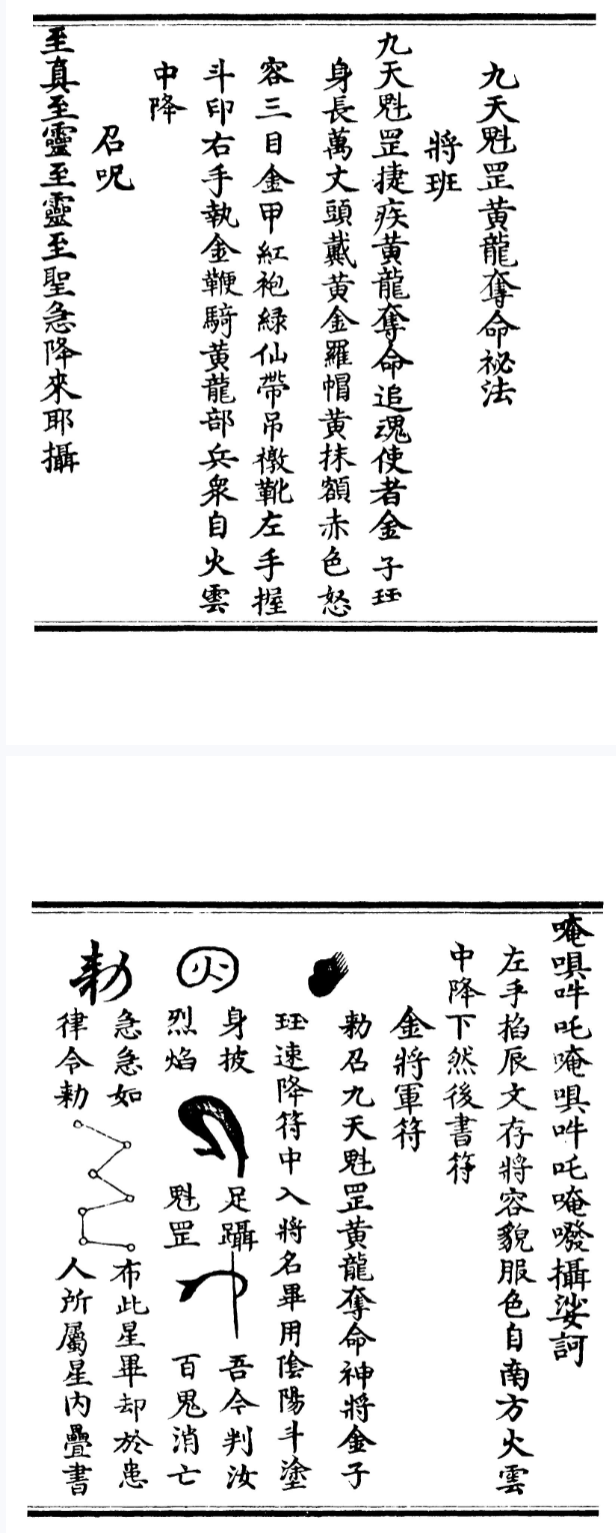 九天魁罡黃龍奪命祕法
將班
九天魁罡捷疾黃龍奪命追魂使者金子玨
身長萬丈頭戴黃金羅帽黃抹額赤色怒
容三目金甲紅袍緑仙帶吊襒靴左手握
斗印右手執金鞭騎黃龍部兵衆自火雲
中降
召呪
至真至靈至靈至聖急降來耶攝
唵吽吒唵吽吒唵攝娑訶
左手掐辰文存將容貌服色自南方火雲
中降下然後書符
金將軍符
勑召九天魁罡黃龍奪命神將金子
玨速降符中入將名畢用陰陽斗塗
火
身披
烈焰
足躡
魁罡
吾今判汝
百鬼消亡
勑
急急如
律令勑
布此星畢却於患
人所屬星内疊書